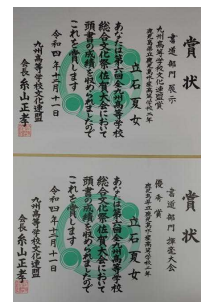 賞状
書道部門 展示
九州高等学校文化連盟賞
鹿児島県立鹿児島水産高等学校 二年
立石夏女
あなたは第六回全九州高等学校
総合文化祭佐賀大会において
頭書の成績を収められましたので
これを賞します
令和四年十二月十一日
九州高等学校文化連盟
会長 糸山正孝
賞状
書道部門 揮毫大会
優秀賞
立石夏女
あなたは第六回全九州高等学校
総合文化祭佐賀大会において
頭書の成績を収められましたので
これを賞します
令和四年十二月十一日
九州高等学校文化連盟
会長 糸山正孝